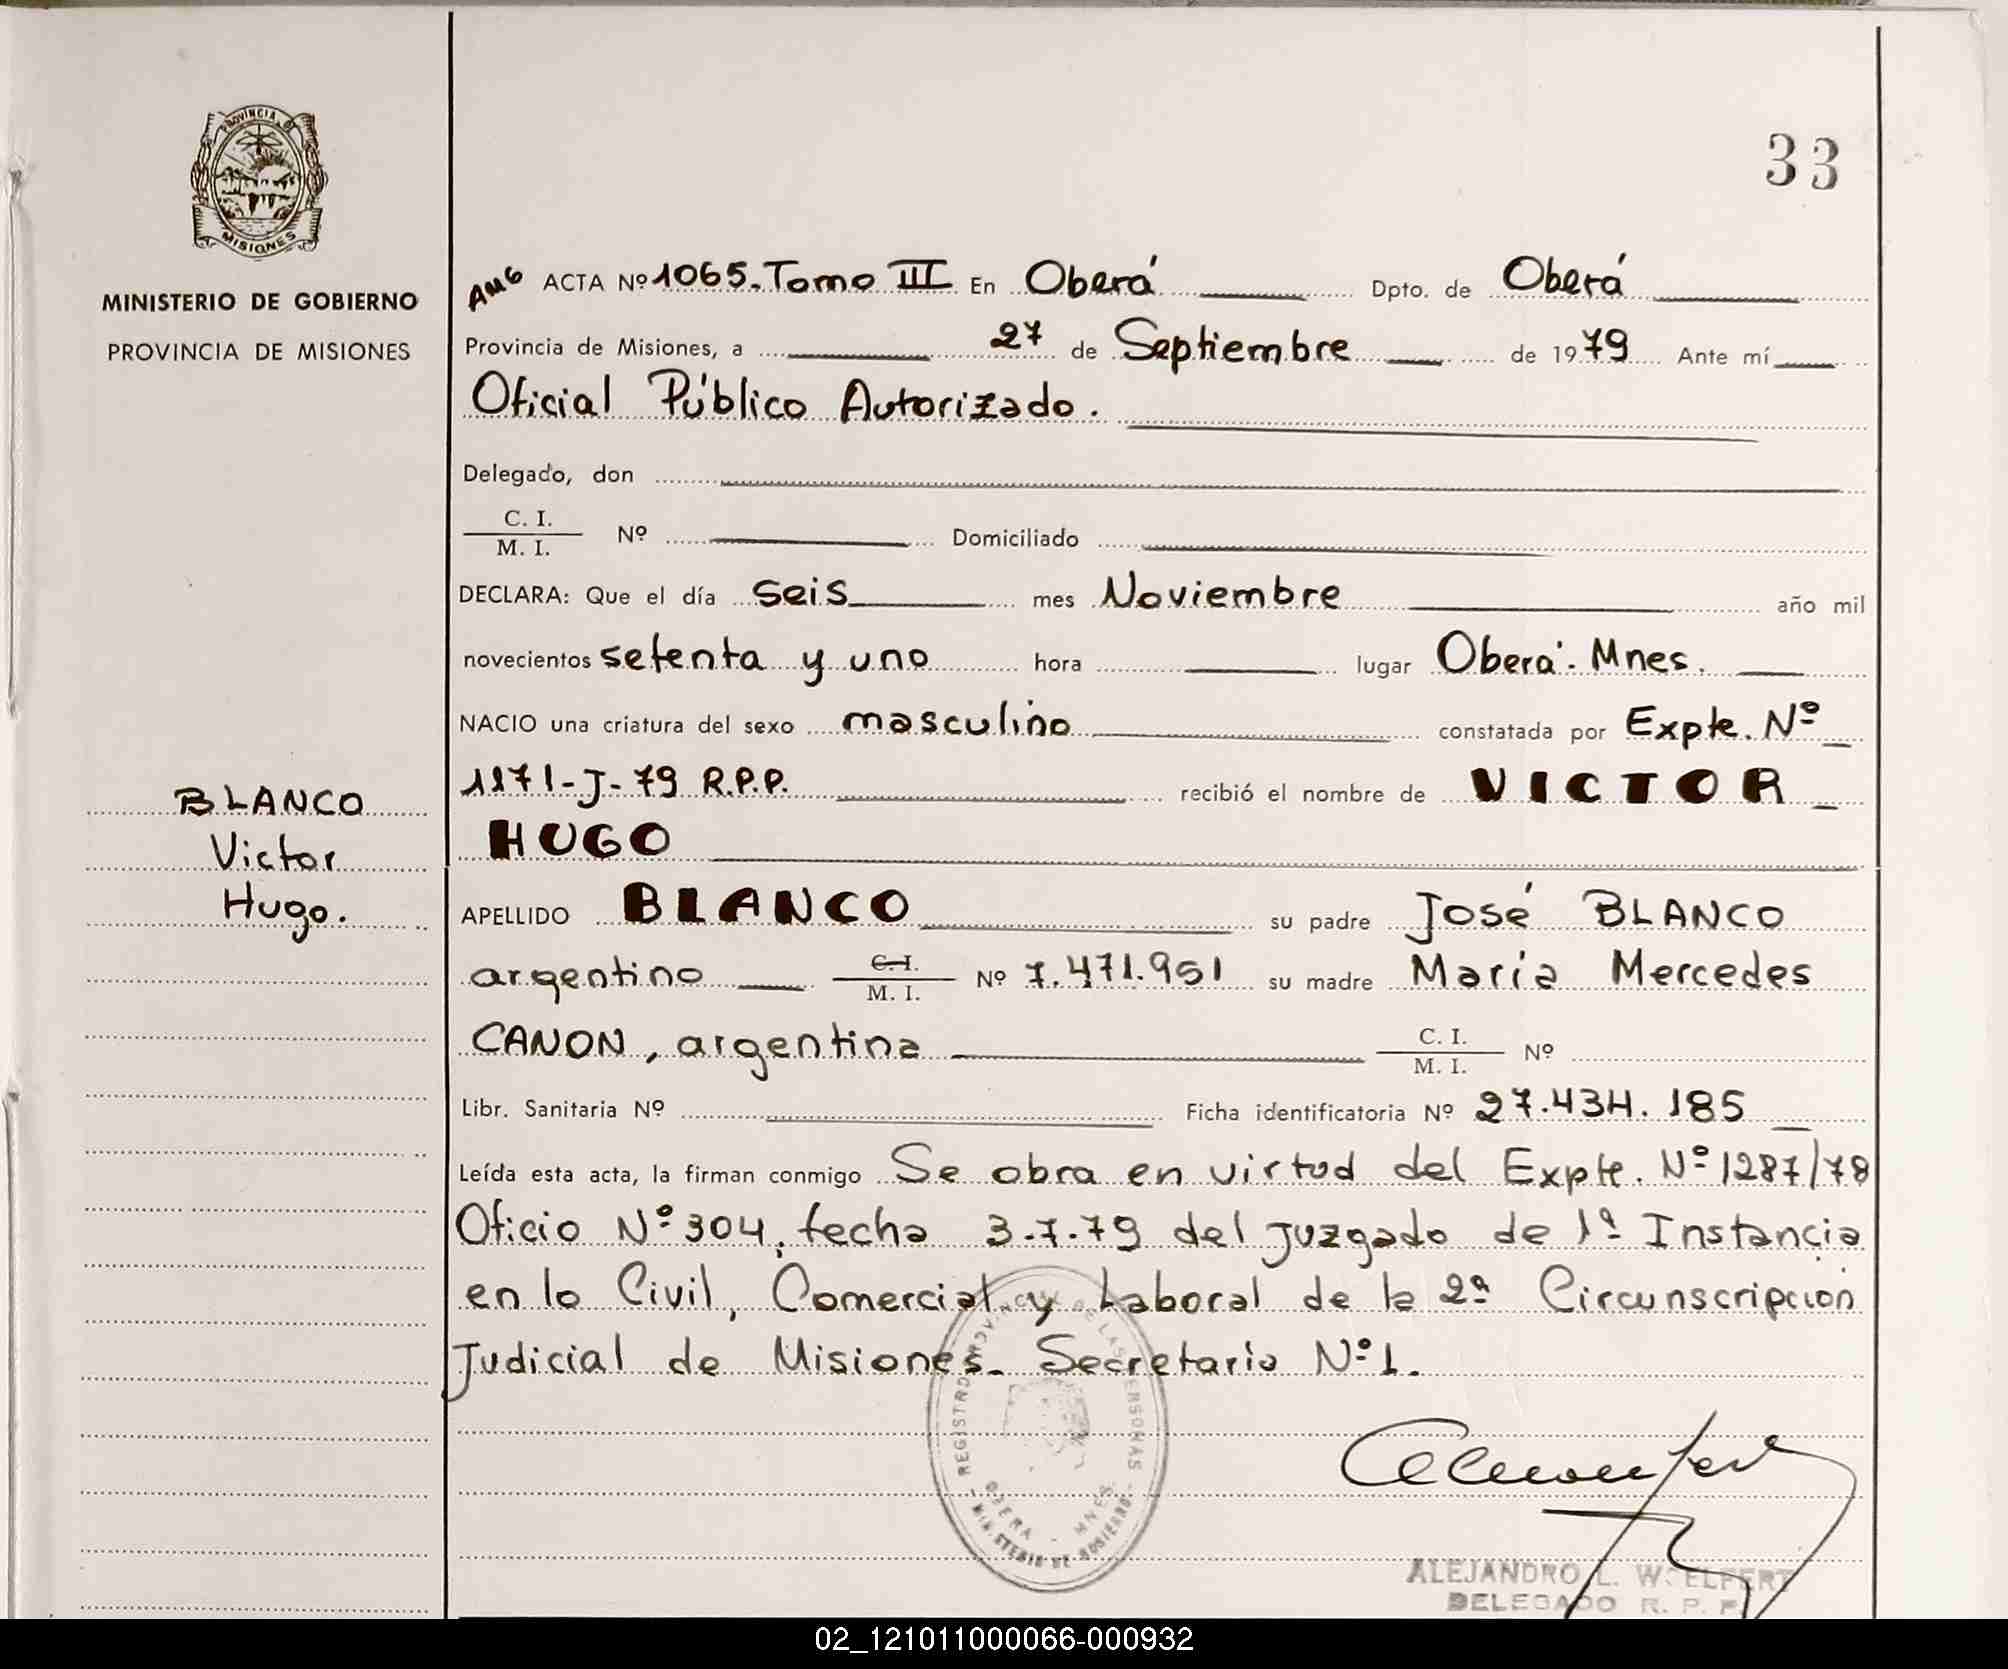 33
PROVINCIA DE
MISIONES
MINISTERIO DE GOBIERNO
PROVINCIA DE MISIONES
AMG ACTA Nº 1065. Tomo III En Oberá Dpto. de Oberá
Provincia de Misiones, a 27 de Septiembre de 1979 Ante mí
Oficial Público Autorizado.
Delegado, don
C. I.
M. I. Nº Domiciliado
DECLARA: Que el día seis mes Noviembre año mil
novecientos setenta y uno hora lugar Oberá. Mnes.
NACIO una criatura del sexo masculino constatada por Expte. Nº
1171-J-79 R.P.P. recibió el nombre de VICTOR
HUGO
BLANCO
Victor
Hugo.
APELLIDO BLANCO su padre José BLANCO
argentino C. I.
M. I. Nº 7.471.951 su madre María Mercedes
CANON, argentina C. I.
M. I. Nº
Libr. Sanitaria Nº Ficha identificatoria Nº 27.434.185
Leída esta acta, la firman conmigo Se obra en virtud del Expte. Nº 1287/78
Oficio Nº 304, fecha 3-7-79 del juzgado de 1ª Instancia
en lo Civil, Comercial y Laboral de la 2ª Circunscripción
Judicial de Misiones. Secretaria Nº 1.
REGISTRO PROVINCIAL DE LAS PERSONAS
OBERA - MNES.
MINISTERIO DE GOBIERNO
ALEJANDRO L. WOELFERT
DELEGADO R. P. P.
02_121011000066-000932